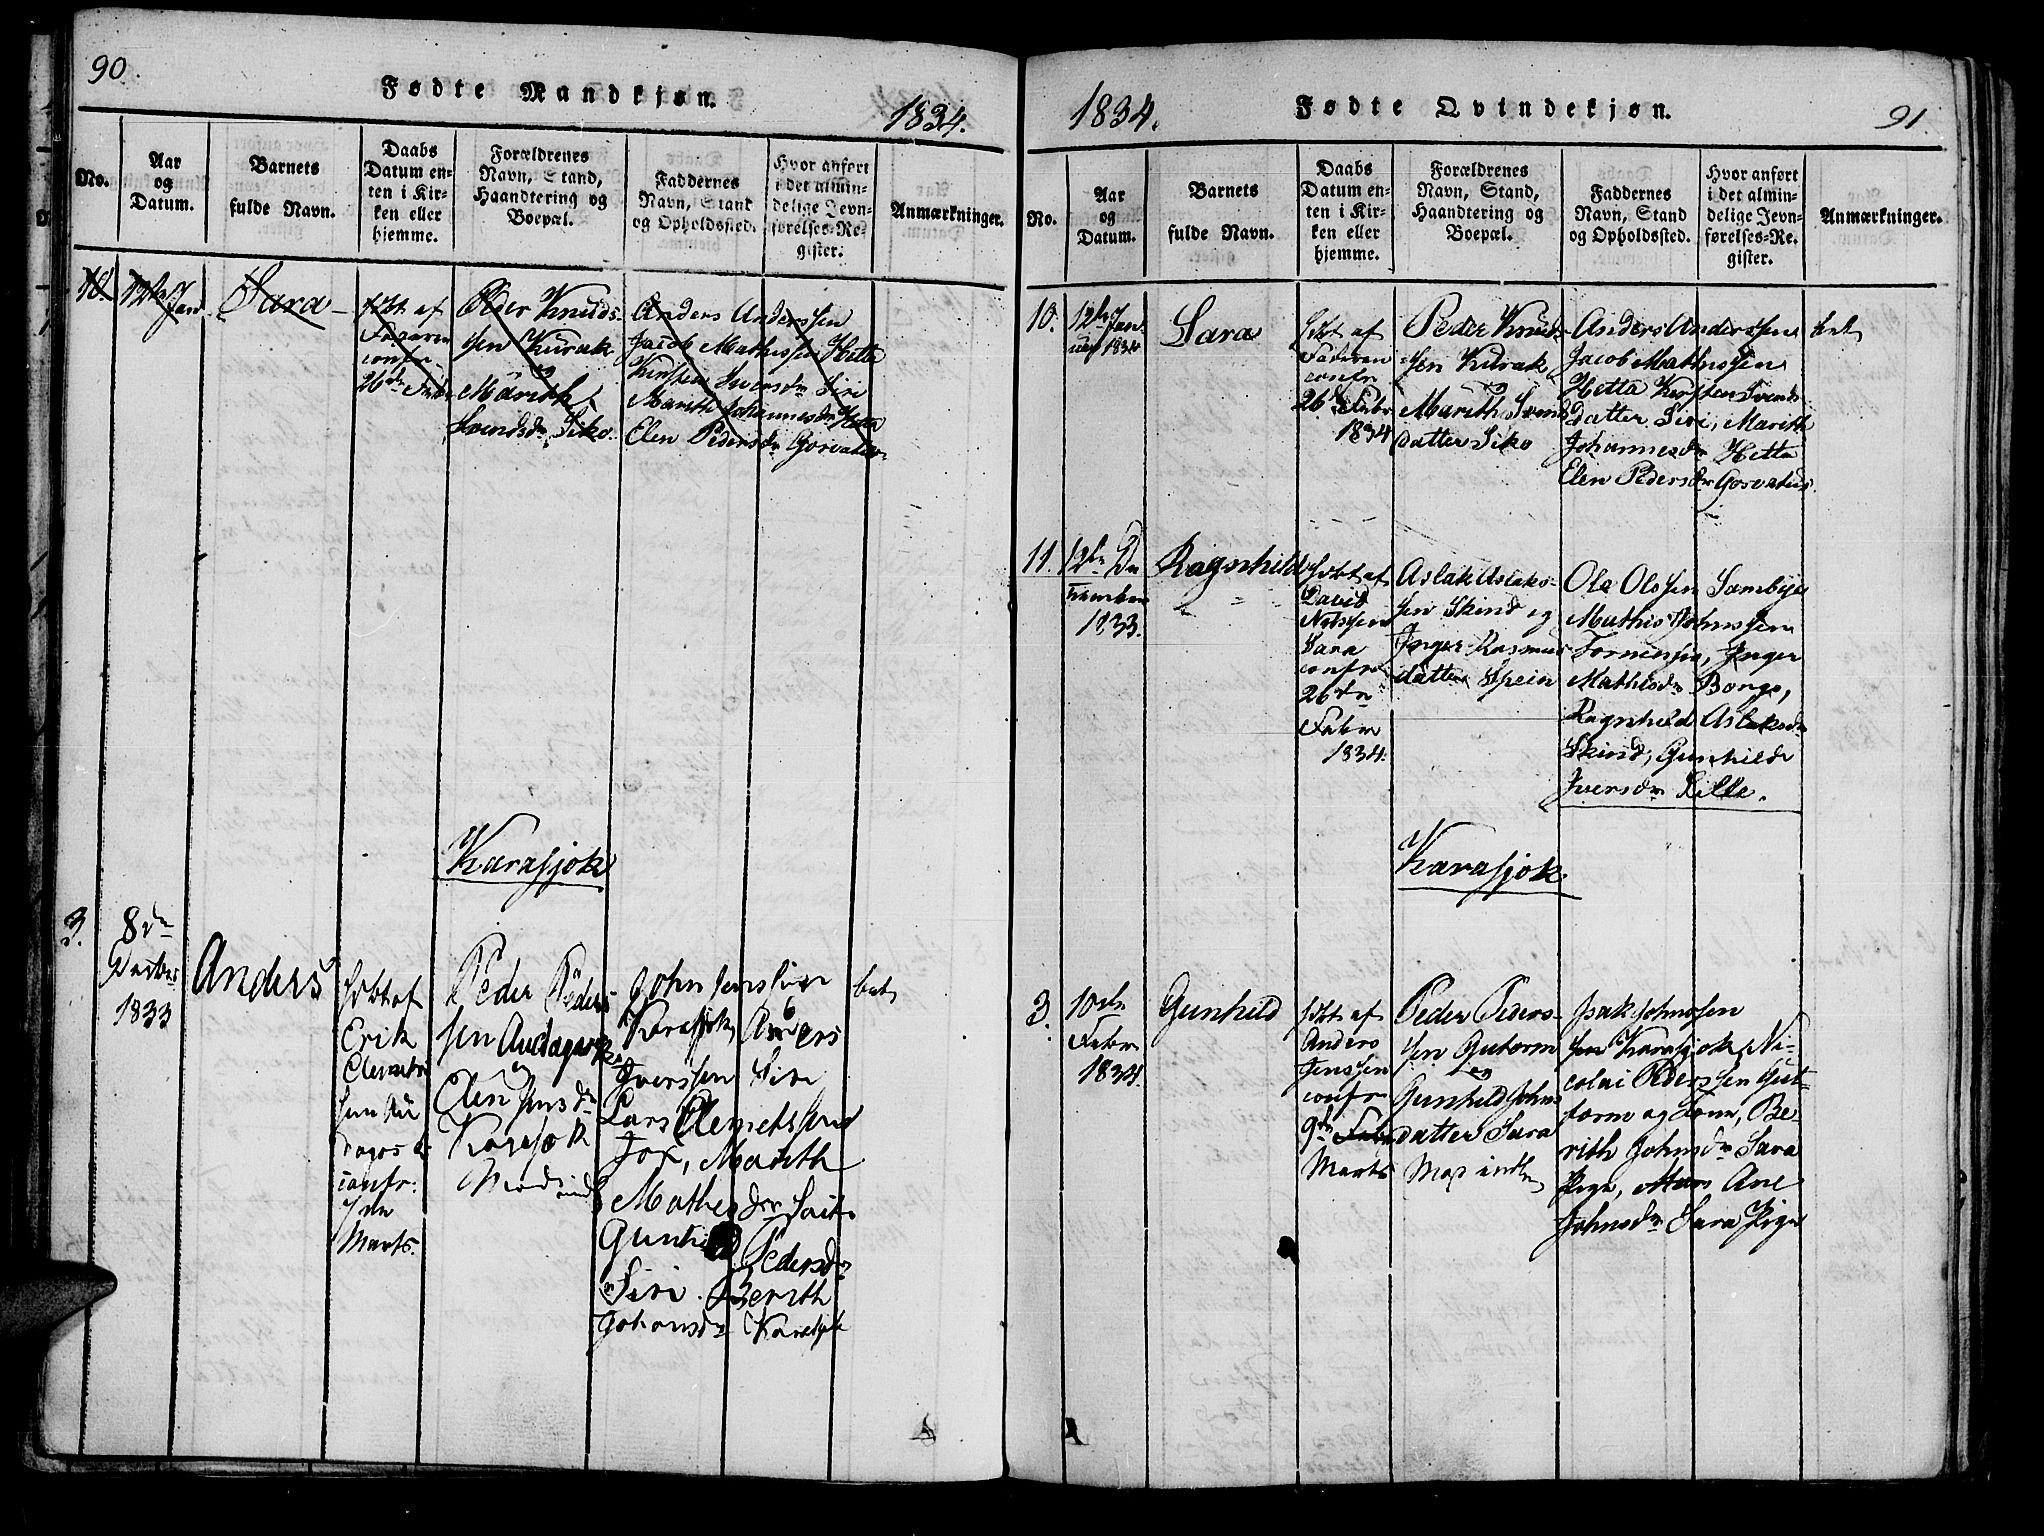 90.
Fødte Mandkjøn.
1834.
No.
Aar
og
Datum.
Barnets
fulde Navn.
Daabs
Datum en-
ten i Kir-
ken eller
hjemme.
Forældrenes
Navn, Stand,
Haandtering og
Boepæl.
Faddernes
Navn, Stand
og Opholdssted.
Hvor anført
i det almin-
delige Jevn-
førelses-Re-
gister.
Anmærkninger.
10. 12te Jan. Sara
døbt af
Faderen
confr
26de Febr
Peder Knuds-
sen Kurak
og
Marith
Svendsdr Siko.
Anders Anderssen
Jacob Mathissen Hetta
Kirsten Svensdr Siri
Marith Johannesdr Hetta
Elen Pedersdr Gorvatus
Karasjok
3.
8de
1833
Anders
døbt af
Erik
Clemet
confr:
Marts.
Peder Peders
sen
og
Elen Jensdr
Karasjok
John Jenssen
Karasjok, Anders
Iverssen Siri
Lars Clemetsen
Jox, Marith
Mathesdr
Gunhild Pedersdr
Siri. Berith
Johansdr Karasjok
1834.
Fødte Qvindekjøn.
91.
No.
Aar
og
Datum.
Barnets
fulde Navn.
Daabs
Datum en-
ten i Kir-
ken eller
hjemme.
Forældrenes
Navn, Stand,
Haandtering og
Boepæl.
Faddernes
Navn, Stand
og Opholdssted.
Hvor anført
i det almin-
delige Jevn-
førelses-Re-
gister.
Anmærkninger.
10.
12te Jan
1834
Sara
døbt af
Faderen
confr
26de Febr
1834
Peder Knud-
sen Kurak
og
Marith Svends
datter Siko
Anders Anderssen
Jacob Mathissen
Hetta Kirsten Svends
datter Siri, Marith
Johannesdr Hetta
Elen Pedersdr Gorvatus
11.
12te De
cember
1833.
Ragnhild
døbt af
David
Nilssen
Sara
confr
26de
Febr
1834.
Aslak Aslaks-
sen Skind og
Inger Rasmus
datter Spein
Ole Olsen Sombye
Mathis Johnssen
Fornessen, Inger
Mathisdr Bongo,
Ragnhild Aslaksdr
Skind, Gunhilde
Iversdr Kille.
Karasjok
3.
10de
Febr
1834.
Gunhild
døbt af
Anders
Jenssen
confr
9de Febr
Marts
Peder Peders-
sen Gutorm
og
Gunhild Johns
datter Sara
Isak Johnssen
Karasjok, Ni-
colai Peders sen Gut-
torm og Kone, Be-
rith Johnsdr Sara
Pige, Ane
Johnsdr Sara Pige